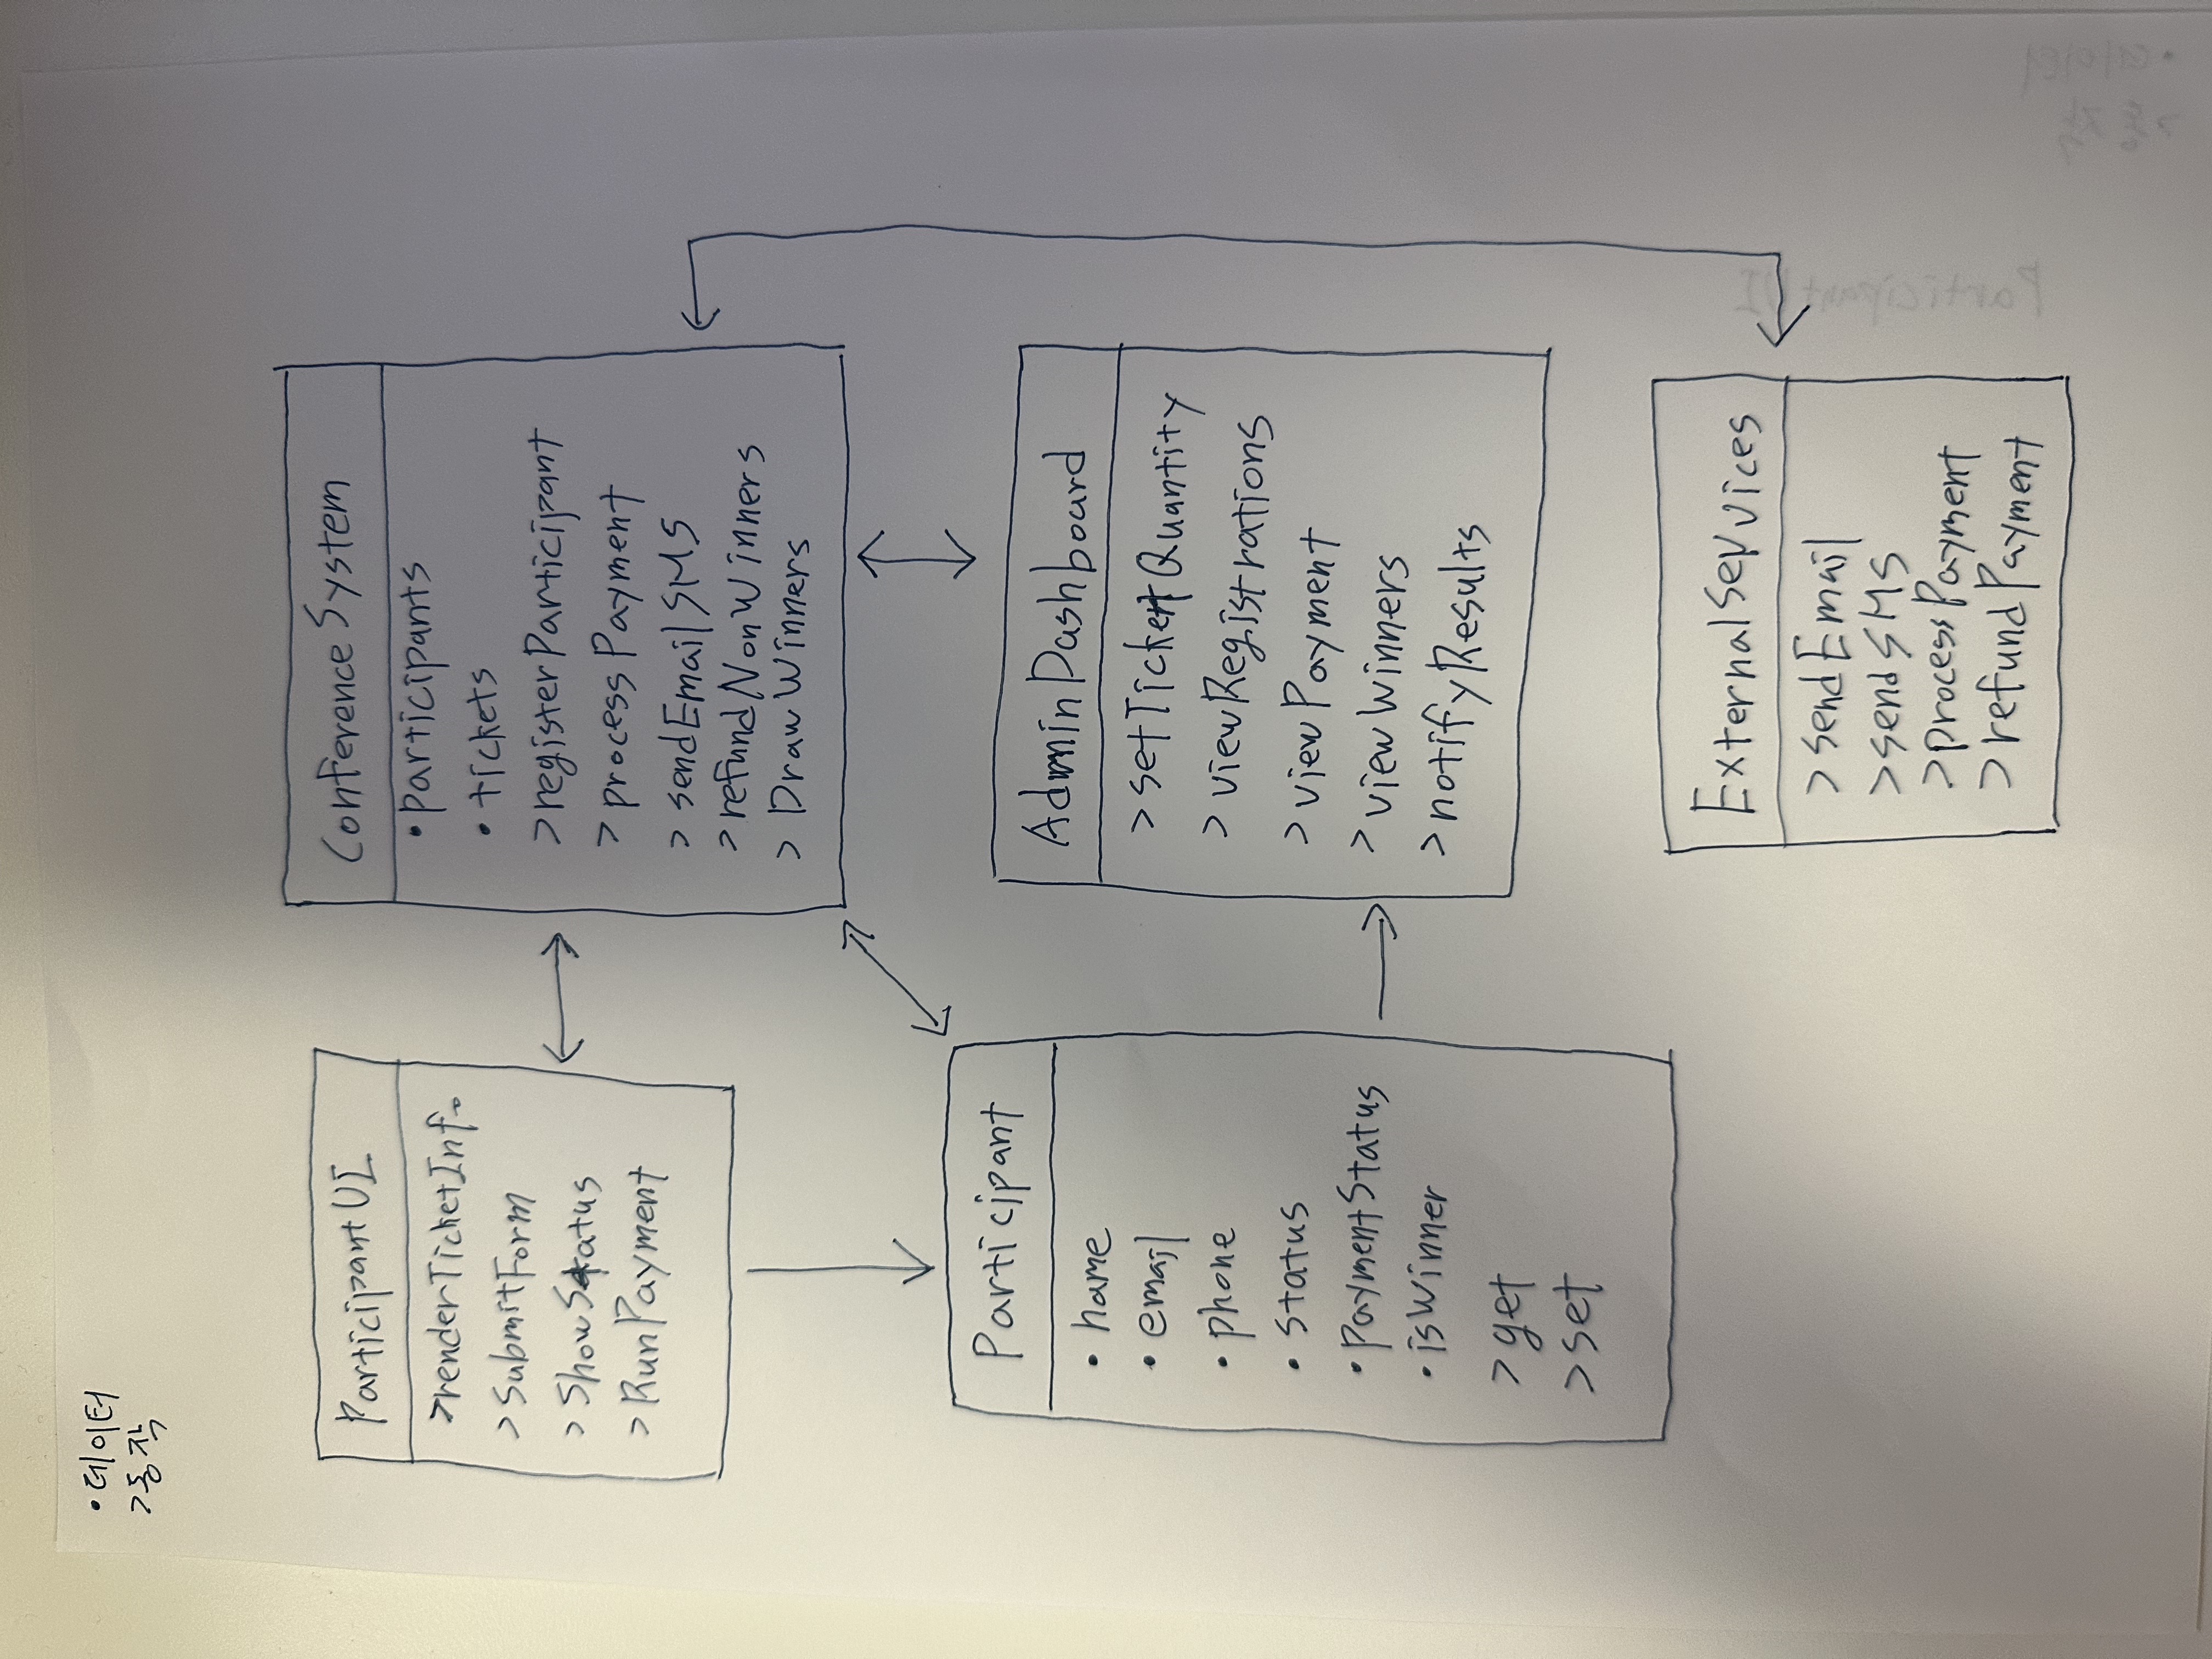 • 데이터
> 동작
ParticipantUI
>renderTicketInfo
> SubmitForm
> ShowStatus
> RunPayment
Conference System
• participants
• tickets
> registerParticipant
> processPayment
> sendEmailSMS
> refundNonWinners
> DrawWinners
Participant
• name
• email
• phone
• status
• paymentStatus
• isWinner
> get
> set
AdminDashboard
> setTicketQuantity
> viewRegistrations
> viewPayment
> viewWinners
> notifyResults
ExternalServices
> sendEmail
> sendSMS
> processPayment
> refundPayment